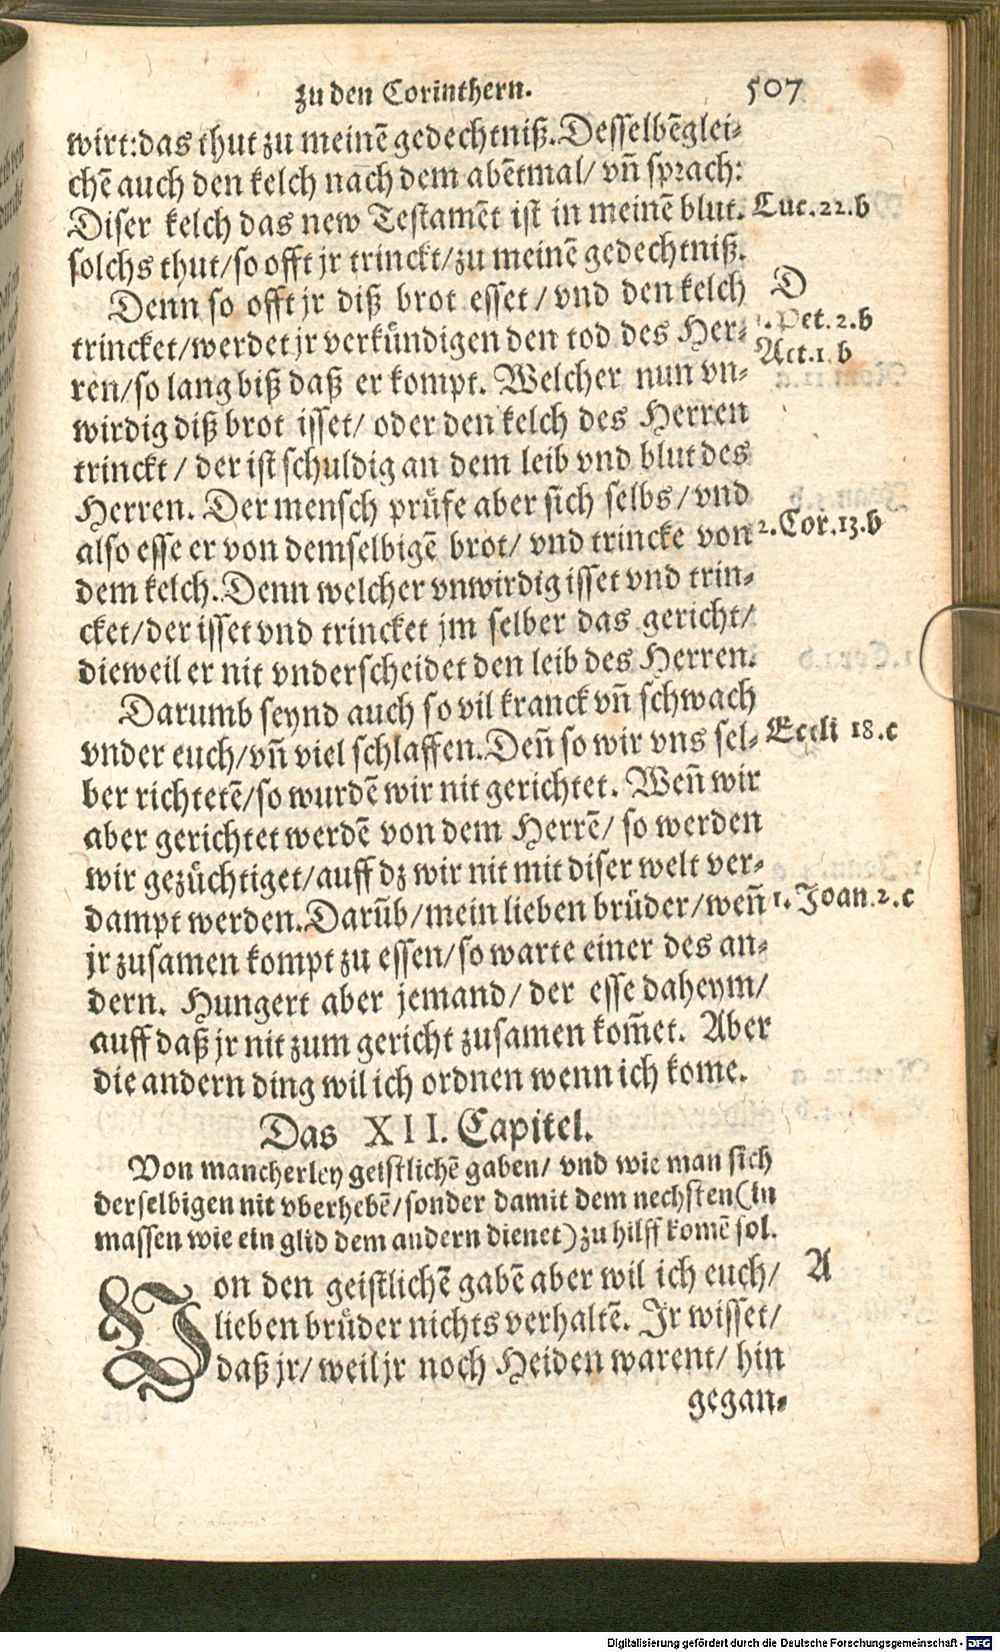 zu den Corinthern. 507
wirt: das thut zu meinē gedechtniß. Desselbēglei-
chē auch den kelch nach dem abētmal/ vñ sprach:
Diser kelch das new Testamēt ist in meinē blut. Luc. 22. b
solchs thut/ so offt jr trinckt/ zu meinē gedechtniß.
Denn so offt jr diß brot esset/ vnd den kelch D
trincket/ werdet jr verkündigen den tod des Her- 1. Pet. 2. b
ren/ so lang biß daß er kompt. Welcher nun vn- Act. 1. b
wirdig diß brot isset/ oder den kelch des Herren
trinckt/ der ist schuldig an dem leib vnd blut des
Herren. Der mensch prüfe aber sich selbs/ vnd
also esse er von demselbigē brot/ vnd trincke von 2. Cor. 13. b
dem kelch. Denn welcher vnwirdig isset vnd trin-
cket/ der isset vnd trincket jm selber das gericht/
dieweil er nit vnderscheidet den leib des Herren.
Darumb seynd auch so vil kranck vñ schwach
vnder euch/ vñ viel schlaffen. Deñ so wir vns sel- Eccli 18. c
ber richtetē/ so wurdē wir nit gerichtet. Weñ wir
aber gerichtet werdē von dem Herrē/ so werden
wir gezüchtiget/ auff dz wir nit mit diser welt ver-
dampt werden. Darūb/ mein lieben brüder/ weñ 1. Joan. 2. c
jr zusamen kompt zu essen/ so warte einer des an-
dern. Hungert aber jemand/ der esse daheym/
auff daß jr nit zum gericht zusamen kom̄et. Aber
die andern ding wil ich ordnen wenn ich kome.
Das XII. Capitel.
Von mancherley geistlichē gaben/ vnd wie man sich
derselbigen nit vberhebē/ sonder damit dem nechsten (in
massen wie ein glid dem andern dienet) zu hilff komē sol.
Von den geistlichē gabē aber wil ich euch/ A
lieben brüder nichts verhaltē. Jr wisset/
daß jr/ weil jr noch Heiden warent/ hin
gegan-
Digitalisierung gefördert durch die Deutsche Forschungsgemeinschaft - DFG